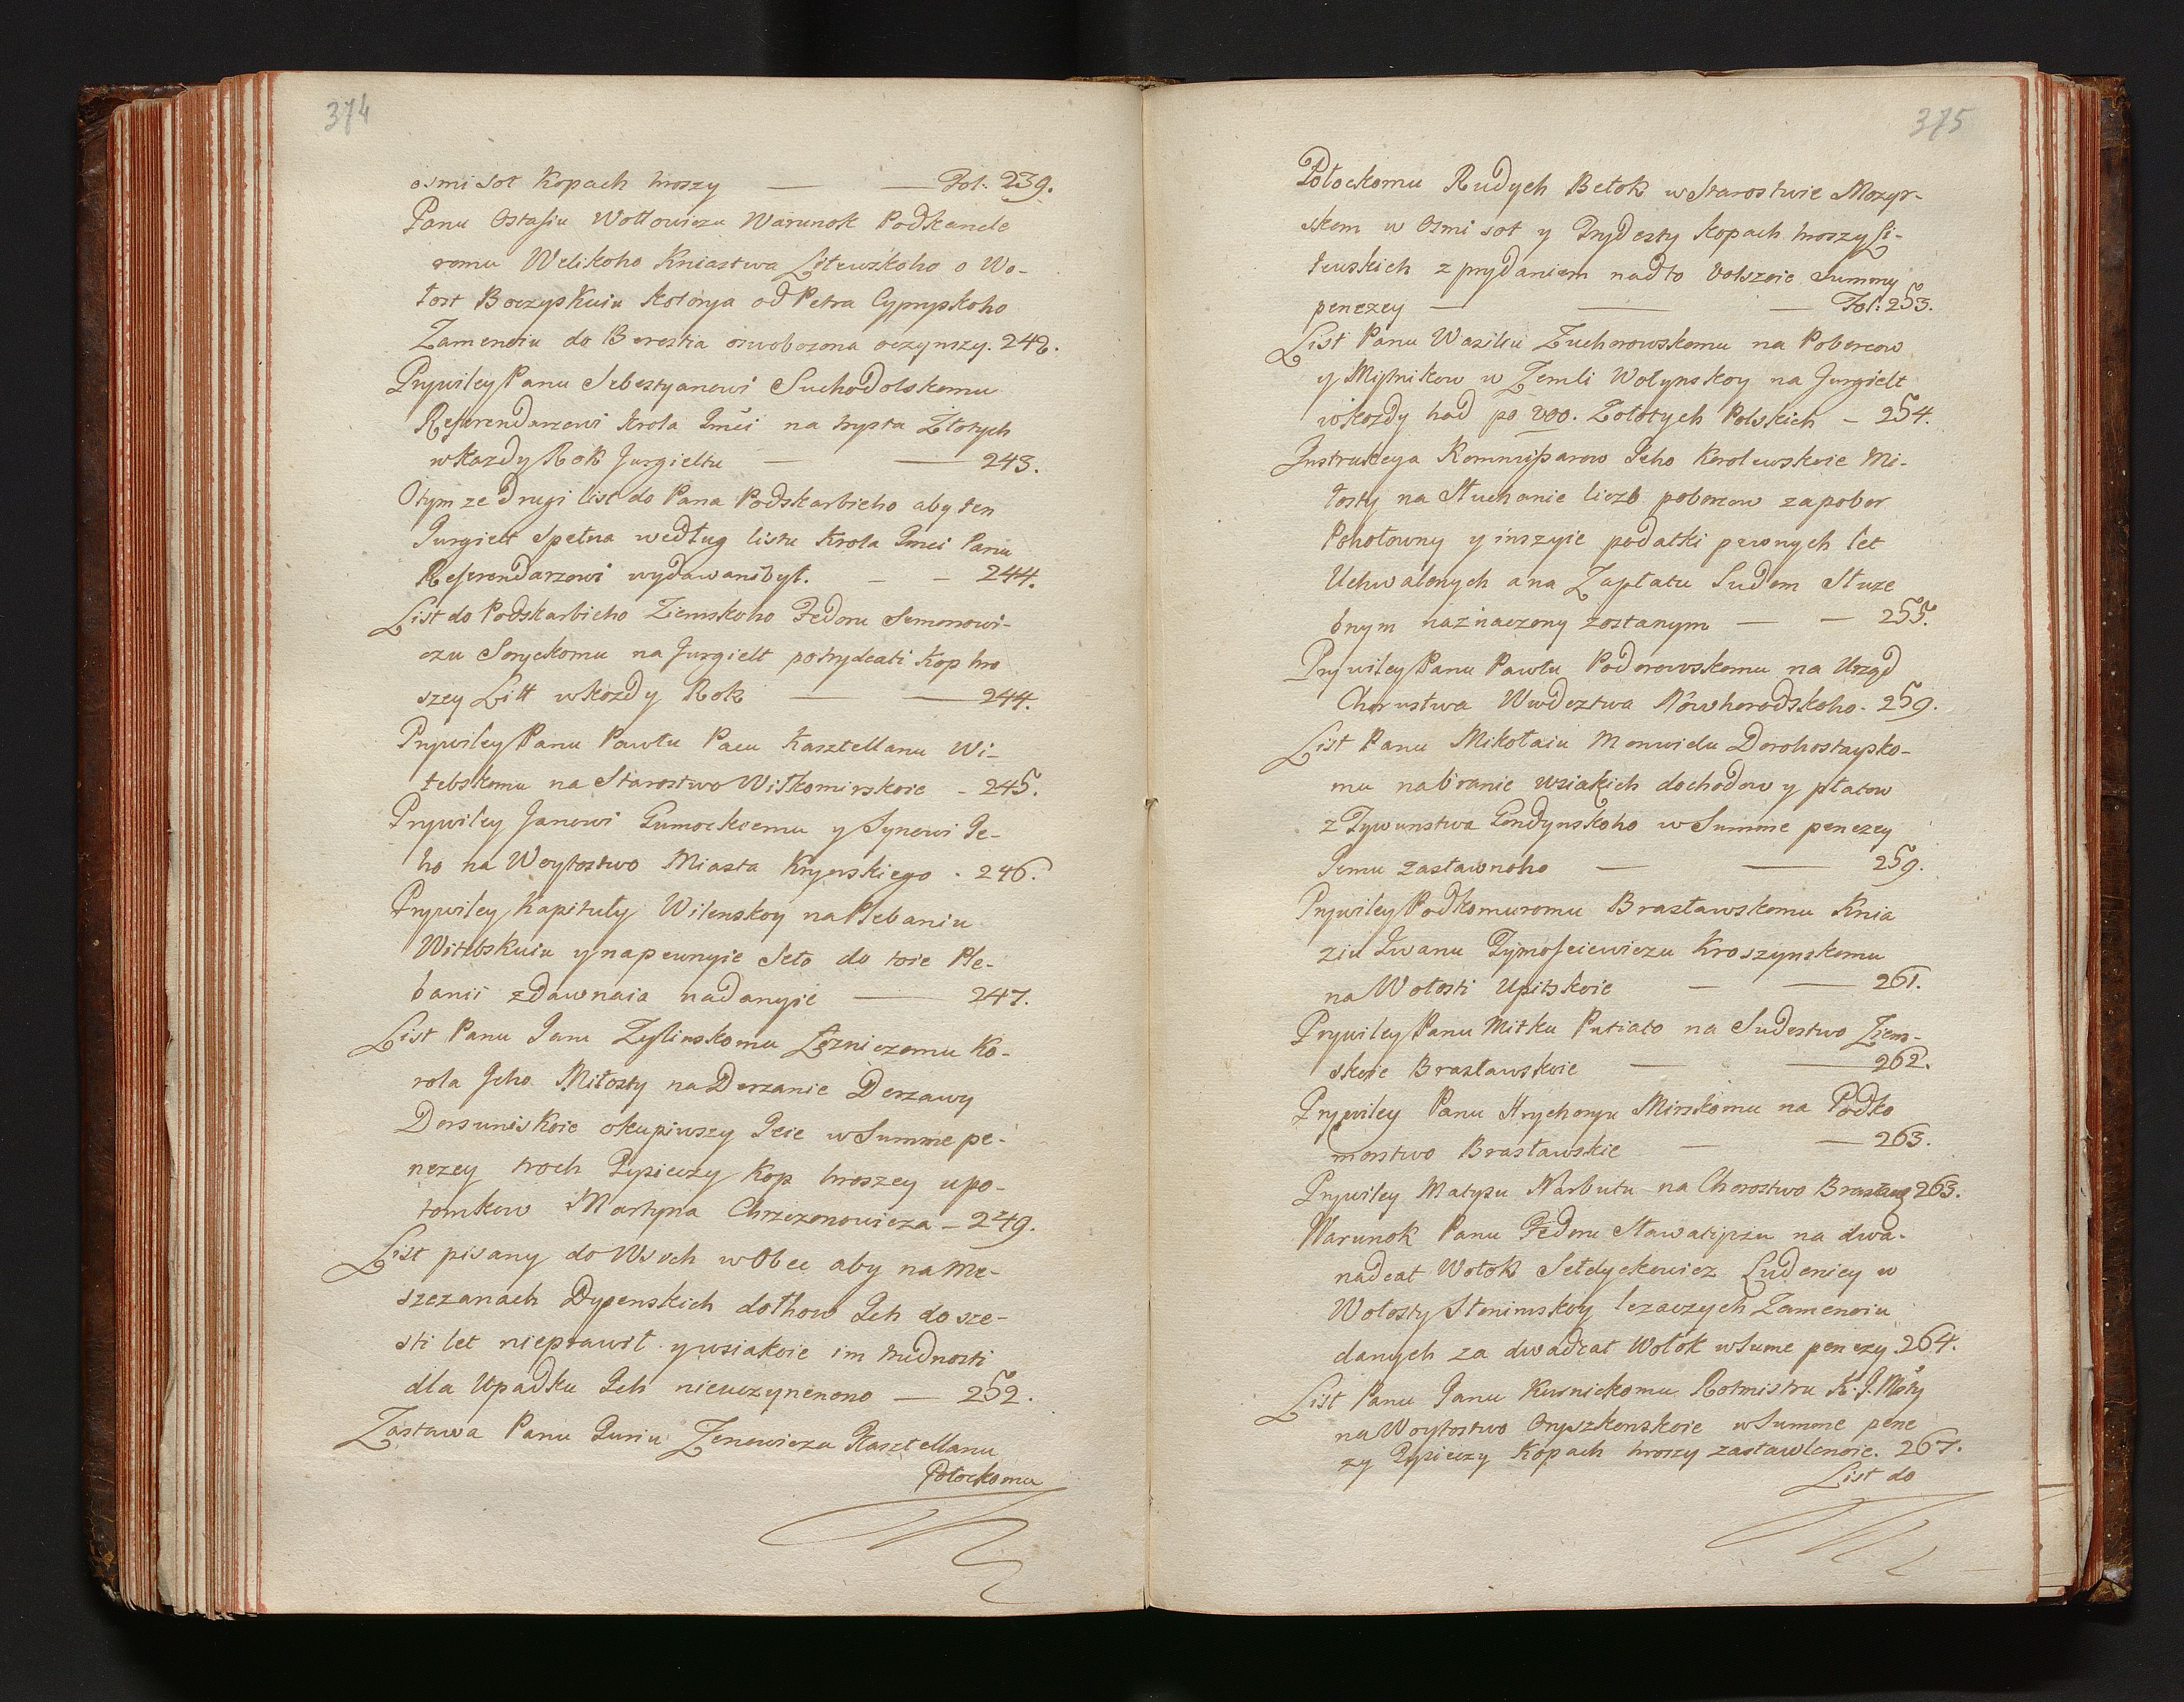 374
osmi sot Kopach hroszy — — Fol. 239.
Panu Ostafiu Wołłowiczu Warunok Podkancle
romu Welikoho Kniastwa Litewskoho o Wo-
łost Boczyskuiu kotoryia od Petra Cypryskoho
Zameneiu do Berestia oswobozona oczynszy. 242.
Prywiley Panu Sebestyanowi Suchodolskomu
Referendarzowi Krola Jmći na trysta Złotych
wkazdy Rok Jurgieltu — — 243.
Otym ze drugi list do Pana Podskarbieho aby ten
Jurgielt spełna według listu Krola Jmći Panu
Referendarzowi wydawani był. — — 244.
List do Podskarbieho Ziemskoho Fedoru Semenowi-
czu Soryckomu na Jurgielt potrydcati Kop hro
szey Litt wkozdy Rok — — 244.
Prywiley Panu Pawłu Pacu Kasztellanu Wi-
tebskomu na Starostwo Wiłkomirskoie - 245.
Prywiley Janowi Gumockiemu y Synowi Je-
ho na Woytostwo Miasta Kryewskiego - 246.
Prywiley Kapituły Wilenskoy na Plebaniu
Witebskuiu y napewnyie Seło do toie Ple-
banii zdawnaia nadanyie — 247.
List Panu Janu Zylinskomu Łozniczomu Ko-
rola Jeho Miłosty na Derzanie Derzawy
Dorsuniskoie okupiwszy Jeie w Summie pe-
nezey troch Tysieczy Kop hroszey upo-
tomkow Martyna Chrzczonowicza - 249.
List pisany do Wsich w Obec aby na Me-
szczanach Dysenskich dołhow Ich do sze-
sti let nieprawił y wsiakoie im trudnosti
dla Upadku Ich nieuczynenono — 252.
Zastawa Panu Juriu Zenowiczu Kasztellanu
Połockomu
375
Połockomu Rudych Bełok w Starostwie Mozyr-
skom w Osmi sot y Trydesty kopach hroszy Li-
tewskich z prydaniem nadto bolszoie Summy
penezey — — — Fol: 253.
List Panu Wasiliu Zuchorowskomu na Poborcow
y Mytnikow w Zemli Wołynskoy na Jurgielt
wkozdy hod po 200. Zołotych Polskich - 254.
Instrukcya Kommissarow Jeho Korolewskoie Mi-
łosty na Słuchanie liczb poborcow zapobor
Poholowny y inszyie podatki pewnych let
Uchwalonych a na Zapłatu Ludem Służe
bnym naznaczony zostanym — — 255.
Prywiley Panu Pawłu Podorowskomu na Urząd
Chorustwa Wwdeztwa Nowhorodskoho - 259.
List Panu Mikołaiu Monwidu Dorohostaysko-
mu nabranie wsiakich dochodow y płatow
z Tywunstwa Gondynskoho w Summie penezey
Jemu zastawnoho — — 259.
Prywiley Podkomuromu Brasławskomu Knia
ziu Iwanu Tymofeiewiczu Kroszynskomu
na Wołosti Upitskoie — — 261.
Prywiley Panu Mitku Putiato na Sudestwo Ziem-
skoie Brasławskoie — — 262.
Prywiley Panu Hrychoryu Mirskomu na Podko
morstwo Brasławskie — — 263.
Prywiley Matysu Narbutu na Chorostwo Brasław 263.
Warunok Panu Fedoru Sławatyczu na dwa-
nadcat Wołok Sełdyckowicz Ludenicy w
Wołosty Słonimskoy lezaczych Zameneiu
danych za dwadcat Wołok w Sume penezy. 264.
List Panu Janu Kusnickomu Rotmistru K. J. Mśty
na Woytostwo Oryszkowskoie w Summe pene
zy Tysieczy Kopach hroszy zastawlenoie. 267.
List do